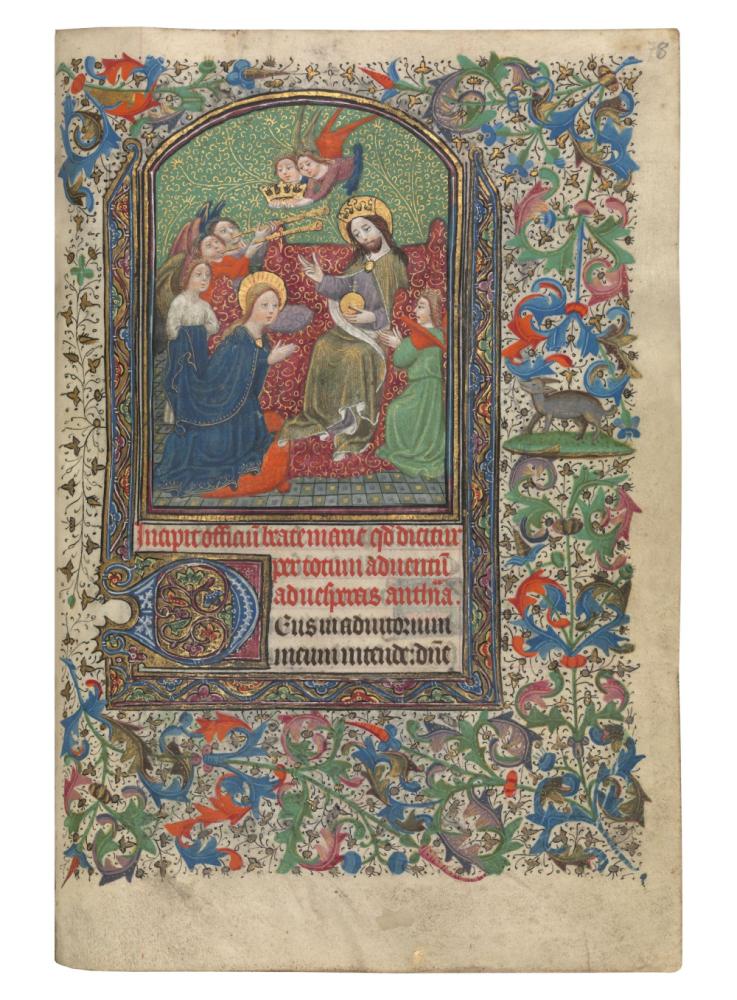 78
Incipit officiū beate marie qd dicitur
per totum aduentū
ad uesperas anth̄a.
DEus in adiutorium
meum intende: dn̄e